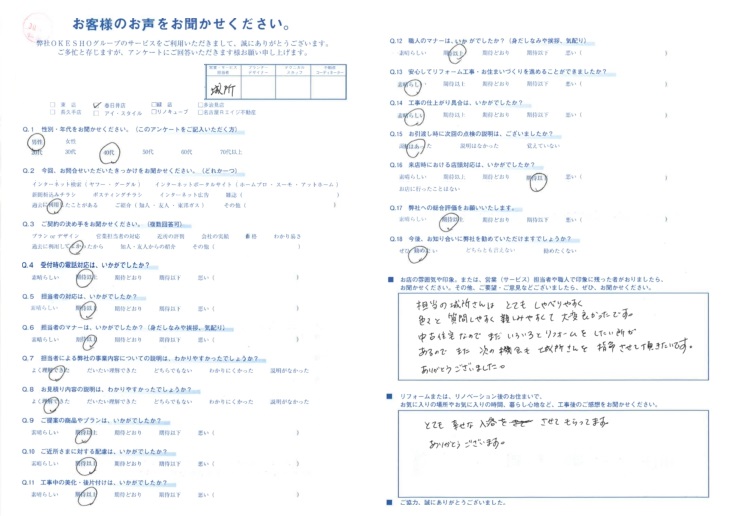 お客様のお声をお聞かせください。
弊社OKESHOグループのサービスをご利用いただきまして、誠にありがとうございます。
ご多忙と存じますが、アンケートにご回答いただきます様お願い申し上げます。
営業・サービス担当者 プランナー・デザイナー メンタルスタッフ 不動産コーディネーター
城所
□ 本店 ✓ 春日井店 □ 緑店 □ 多治見店
□ 長久手店 □ アイ・スタイル □ リノキューブ □ 名古屋リミックス不動産
Q.1 性別・年代をお聞かせください。(このアンケートをご記入いただく方)
男性 女性
30代 40代 50代 60代 70代以上
Q.2 今回、お問合せいただいたきっかけをお聞かせください。(どれか一つ)
インターネット検索(ヤフー・グーグル) インターネットポータルサイト(ホームプロ・スーモ・アットホーム)
新聞折込みチラシ ポスティングチラシ インターネット広告 雑誌( )
過去に利用したことがある ご紹介(知人・友人・家族ガス) その他( )
Q.3 ご契約の決め手をお聞かせください。(複数回答可)
プラン or デザイン 営業担当者の対応 近所の評判 会社の実績 価格 わかり易さ
過去に利用してよかったから 知人・友人からの紹介 その他( )
Q.4 受付時の電話対応は、いかがでしたか?
素晴らしい 期待以上 期待どおり 期待以下 悪い( )
Q.5 担当者の対応は、いかがでしたか?
素晴らしい 期待以上 期待どおり 期待以下 悪い( )
Q.6 担当者のマナーは、いかがでしたか?(身だしなみや挨拶、気配り)
素晴らしい 期待以上 期待どおり 期待以下 悪い( )
Q.7 担当者による弊社の事業内容についての説明は、わかりやすかったでしょうか?
よく理解できた だいたい理解できた どちらでもない わかりにくかった 説明がなかった
Q.8 お見積り内容の説明は、わかりやすかったでしょうか?
よく理解できた だいたい理解できた どちらでもない わかりにくかった 説明がなかった
Q.9 ご提案の商品やプランは、いかがでしたか?
素晴らしい 期待以上 期待どおり 期待以下 悪い( )
Q.10 ご近所さまに対する配慮は、いかがでしたか?
素晴らしい 期待以上 期待どおり 期待以下 悪い( )
Q.11 工事中の美化・後片付けは、いかがでしたか?
素晴らしい 期待以上 期待どおり 期待以下 悪い( )
Q.12 職人のマナーは、いかがでしたか?(身だしなみや挨拶、気配り)
素晴らしい 期待以上 期待どおり 期待以下 悪い( )
Q.13 安心してリフォーム工事・お住まいづくりを進めることができましたか?
素晴らしい 期待以上 期待どおり 期待以下 悪い( )
Q.14 工事の仕上がり具合は、いかがでしたか?
素晴らしい 期待以上 期待どおり 期待以下 悪い( )
Q.15 お引渡し時に次回の点検の説明は、ございましたか?
説明はあった 説明はなかった 覚えていない
Q.16 来店時における店頭対応は、いかがでしたか?
素晴らしい 期待以上 期待どおり 期待以下 悪い( )
お店に行ったことはない
Q.17 弊社への総合評価をお願いいたします。
素晴らしい 期待以上 期待どおり 期待以下 悪い( )
Q.18 今後、お知り合いに弊社を勧めていただけますでしょうか?
ぜひ勧めたい どちらとも言えない 勧めたくない
■ お店の雰囲気や印象。または、営業(サービス)担当者や職人で印象に残った者がおりましたら、
お聞かせください。その他、ご要望・ご意見などございましたら、ぜひ、お聞かせください。
担当の城所さんは とても しゃべりやすく
色々と 質問しやすく 親しみやすくて 大変良かったです。
中古住宅なので まだ いろいろとリフォームをしたい所が
あるので また 次の機会も 城所さんを 指名させて頂きたいです。
ありがとうございました。
■ リフォームまたは、リノベーション後のお住まいで、
お気に入りの場所やお気に入りの時間、暮らし心地など、工事後のご感想をお聞かせください。
とても 幸せな 入浴を させて もらってます。
ありがとう ございます。
■ ご協力、誠にありがとうございました。